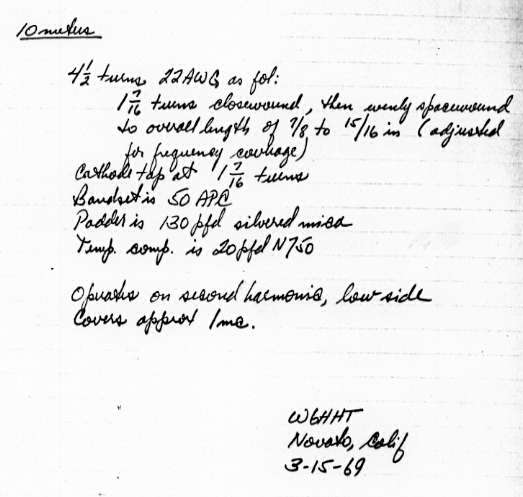 10 meters
4 1/2 turns 22AWG as fol:
1 7/16 turns closewound, then evenly spacewound
to overall length of 7/8 to 15/16 in (adjusted
for frequency coverage)
Cathode tap at 1 7/16 turns
Bandset is 50 APC
Padder is 130 pfd silvered mica
Temp. comp. is 20 pfd N750
Operates on second harmonic, low side
Covers approx 1mc.
W6HHT
Novato, Calif
3-15-69